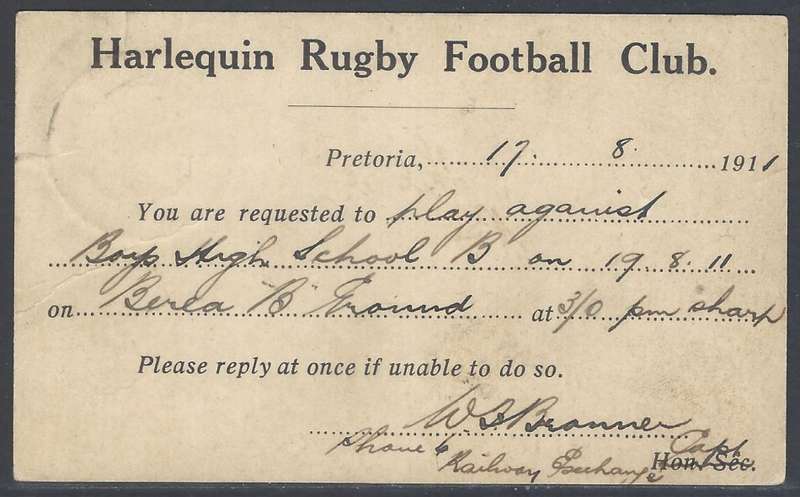 Harlequin Rugby Football Club.
Pretoria, 17. 8. 1911
You are requested to play against
Boys High School B on 19. 8. 11
on Berea "B" Ground at 3/0 pm sharp
Please reply at once if unable to do so.
Bronner
Phone 6 Capt
Railway Exchange Hon. Sec.